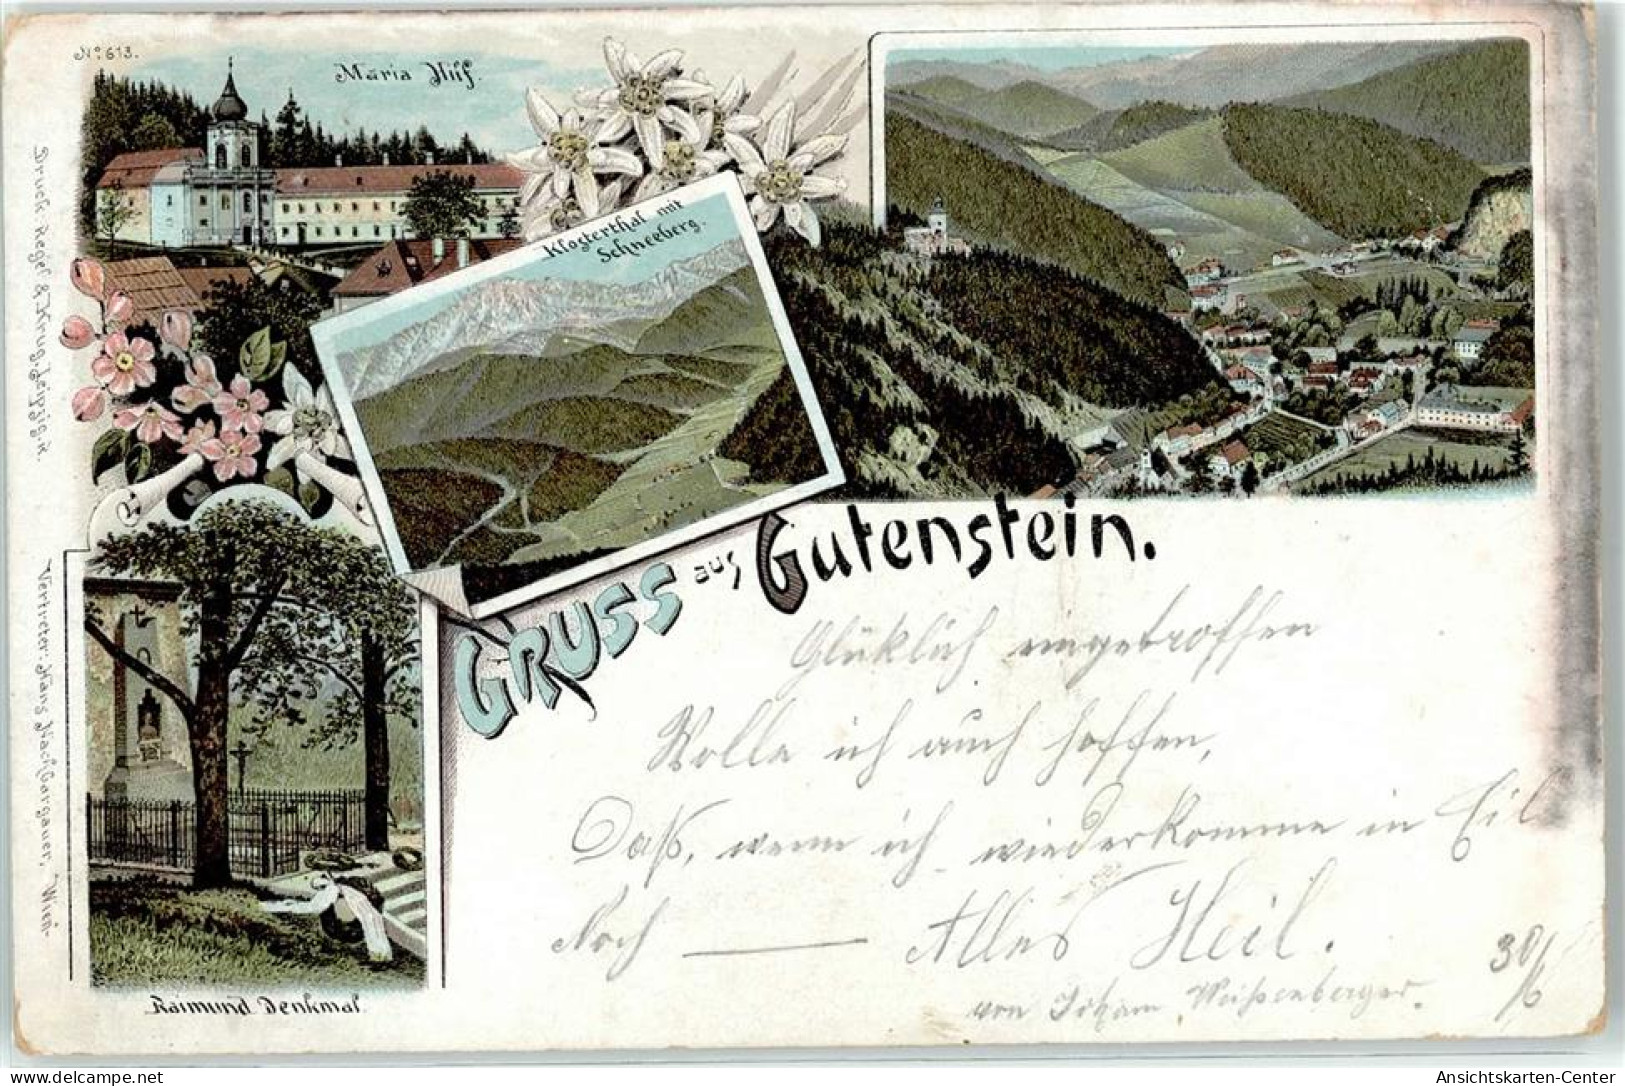 No. 613.
Maria Hilf.
Klosterthal mit
Schneeberg.
Druck: Regel & Krug, Leipzig R.
Vertreter: Hans Nachbargauer, Wien.
Gruss aus Gutenstein.
Raimund Denkmal.
Glücklich eingetroffen
Wolle ich auch hoffen,
Daß, wenn ich wiederkomme in Eil
Noch — Alles Heil.
von Johann Weißenberger.
30/6
Ansichtskarten-Center
delcampe.net